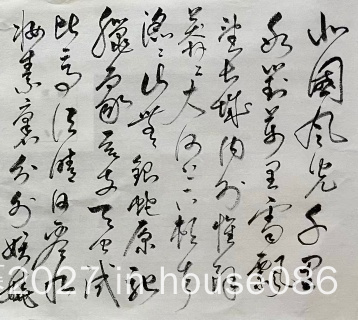 北国风光千里
冰封万里雪飘
望长城内外惟余
莽々大河上下顿失
滔々山舞银蛇原驰
腊象欲与天公试
比高须晴日看红
妆素裹分外妖娆
2027 in-house086